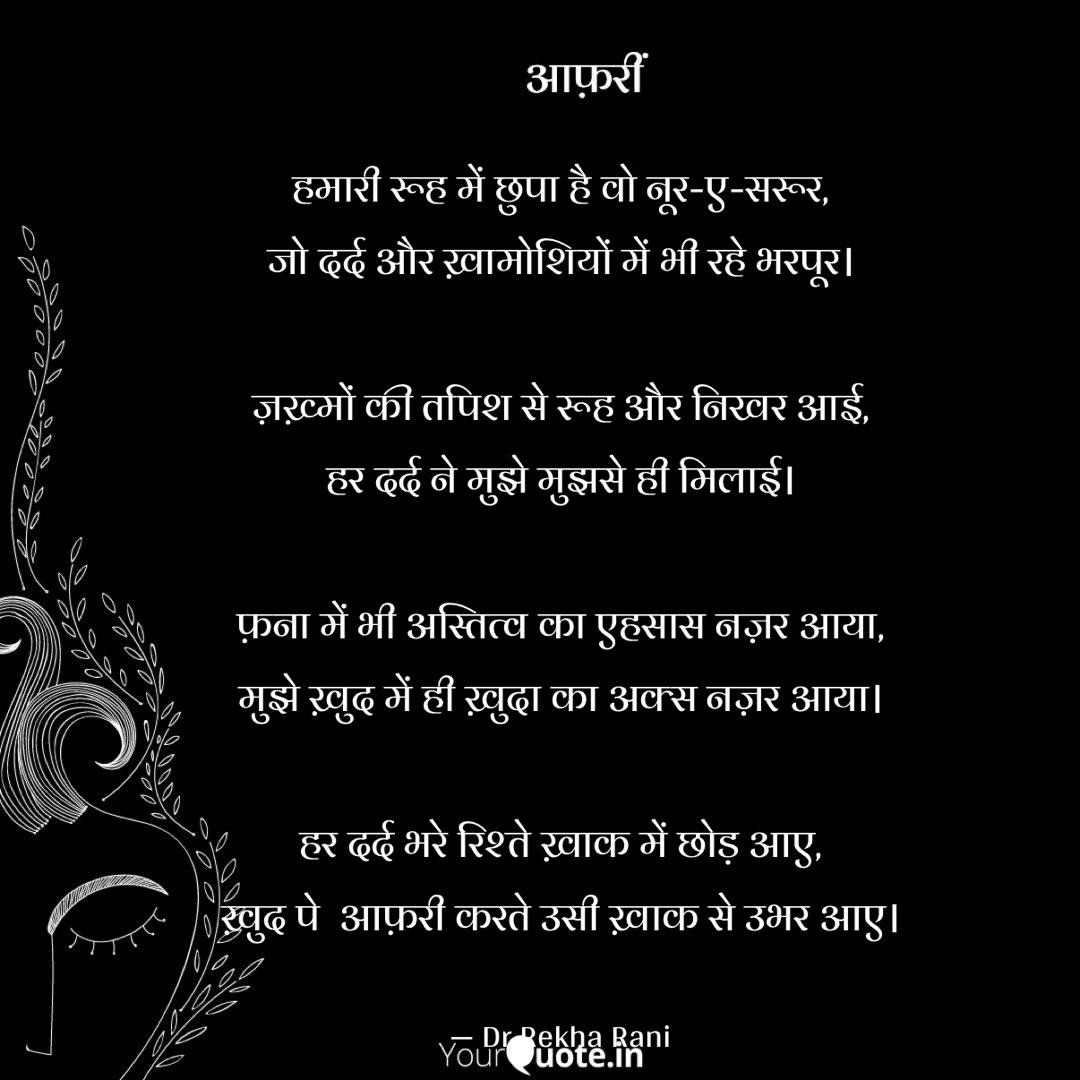 आफ़रीं
हमारी रूह में छुपा है वो नूर-ए-सरूर,
जो दर्द और ख़ामोशियों में भी रहे भरपूर।
ज़ख़्मों की तपिश से रूह और निखर आई,
हर दर्द ने मुझे मुझसे ही मिलाई।
फ़ना में भी अस्तित्व का एहसास नज़र आया,
मुझे ख़ुद में ही ख़ुदा का अक्स नज़र आया।
हर दर्द भरे रिश्ते ख़ाक में छोड़ आए,
ख़ुद पे  आफ़री करते उसी ख़ाक से उभर आए।
— Dr Rekha Rani
YourQuote.in